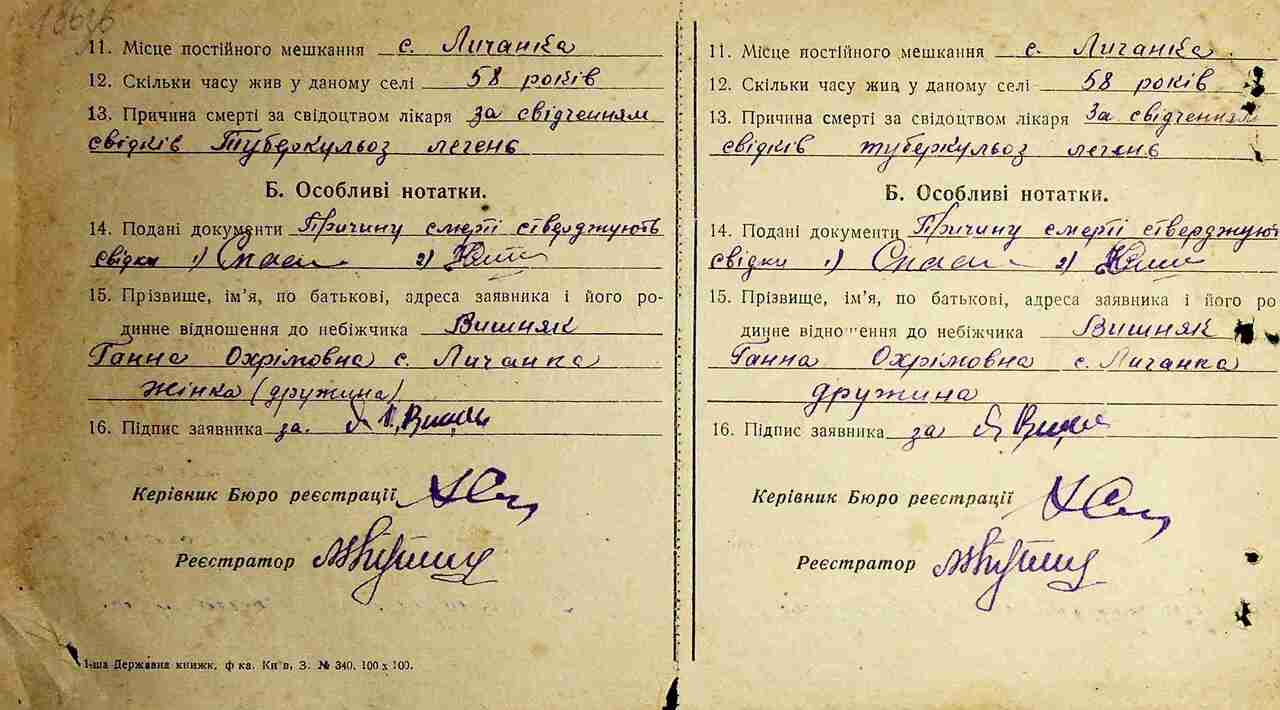 11. Місце постійного мешкання с. Личанка
12. Скільки часу жив у даному селі 58 років
13. Причина смерті за свідоцтвом лікаря за свідченням
свідків Туберкульоз легень
Б. Особливі нотатки.
14. Подані документи Причину смерті стверджують
свідки 1) 2)
15. Прізвище, ім'я, по батькові, адреса заявника і його ро-
динне відношення до небіжчика Вишняк
Ганна Охрімовна с. Личанка
жінка (дружина)
16. Підпис заявника за
Керівник Бюро реєстрації
Реєстратор
1-ша Державна книжк. ф-ка. Київ, З. № 340. 100 х 100.
11. Місце постійного мешкання с. Личанка
12. Скільки часу жив у даному селі 58 років
13. Причина смерті за свідоцтвом лікаря За свідченням
свідків туберкульоз легень
Б. Особливі нотатки.
14. Подані документи Причину смерті стверджують
свідки 1) 2)
15. Прізвище, ім'я, по батькові, адреса заявника і його ро
динне відношення до небіжчика Вишняк
Ганна Охрімовна с. Личанка
дружина
16. Підпис заявника за
Керівник Бюро реєстрації
Реєстратор